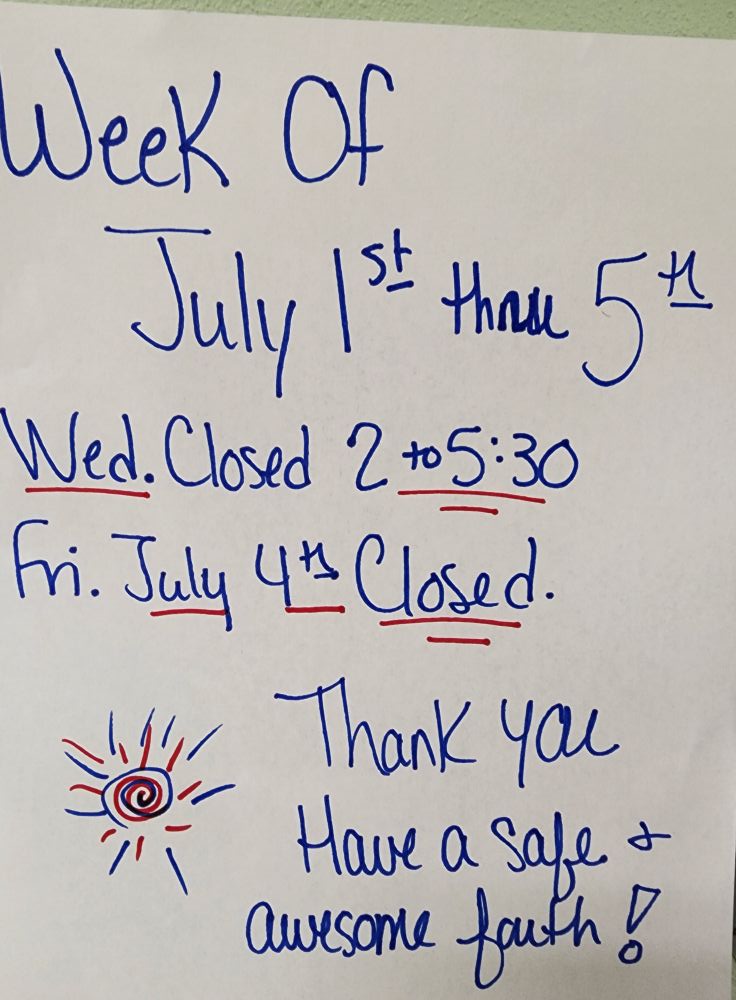 Week Of
July 1st thru 5th
Wed. Closed 2 to 5:30
Fri. July 4th Closed.
Thank you
Have a safe &
awesome fourth!